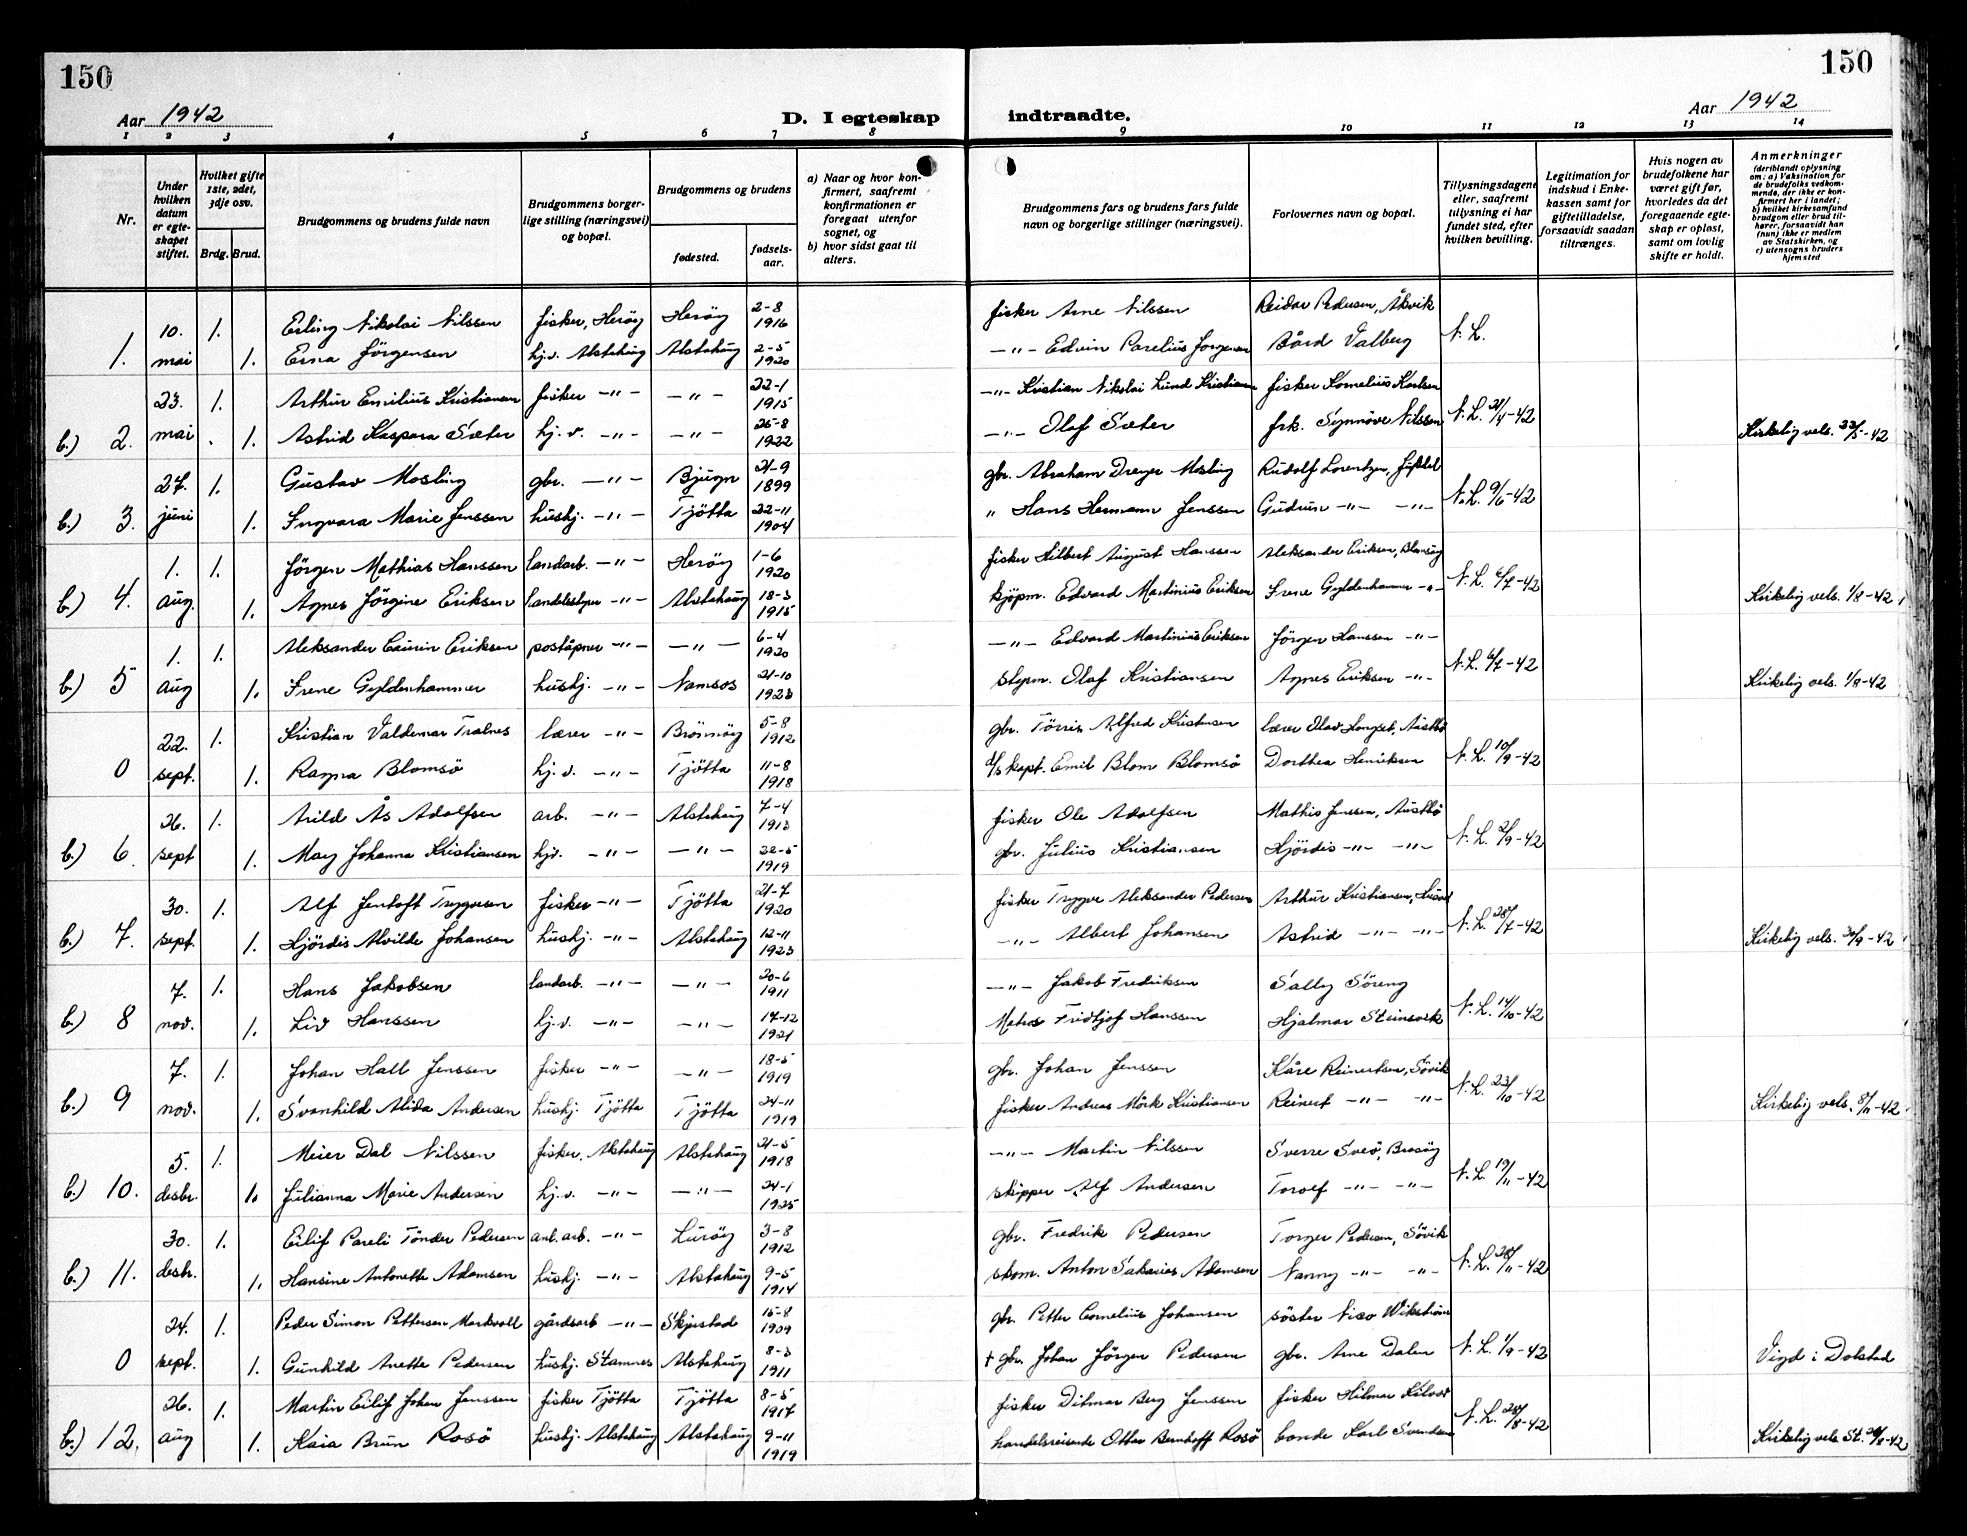 150
150
Aar 1942
D. I egteskap indtraadte.
Aar 1942
1 2 3 4 5 6 7 8 9 10 11 12 13 14
Nr.
Under hvilken datum er egteskapet stiftet.
Hvilket gifte 1ste, 2det, 3dje osv.
Brdg. Brud.
Brudgommens og brudens fulde navn
Brudgommens borgerlige stilling (næringsvei) og bopæl.
Brudgommens og brudens
fødested.
fødselsaar.
a) Naar og hvor konfirmert, saafremt konfirmationen er foregaat utenfor sognet, og
b) hvor sidst gaat til alters.
Brudgommens fars og brudens fars fulde navn og borgerlige stillinger (næringsvei).
Forlovernes navn og bopæl.
Tillysningsdagene eller, saafremt tillysning ei har fundet sted, efter hvilken bevilling.
Legitimation for indskud i Enkekassen samt for giftetilladelse, forsaavidt saadan tiltrænges.
Hvis nogen av brudefolkene har været gift før, hvorledes da det foregaaende egteskap er opløst, samt om lovlig skifte er holdt.
Anmerkninger (deriblandt oplysning om: a) Vaksination for de brudefolks vedkommende, der ikke er konfirmert her i landet; b) hvilket kirkesamfund brudgom eller brud tilhører, forsaavidt han (hun) ikke er medlem av Statskirken, og c) utensogns bruders hjemsted
10. 1. Erling Nikolai Nilssen fisker, Herøy Herøy 2-8 1916 fisker Arne Nilssen Reidar Pedersen, Åkvik N.L.
1. mai 1. Erna Jörgensen hj.d. Alstahaug Alstahaug 2-5 1920 -"- Edvin Parelius Jorgensen Bård Valberg
23. 1. Arthur Emilius Kristiansen fisker -"- -"- 22-1 1915 -"- Kristian Nikolai Lund Kristiansen fisker Kornelius Karlsen N.L. 21/4-42
b.) 2. mai 1. Astrid Kaspara Sæter hj.d. -"- -"- 26-8 1922 -"- Olaf Sæter frk. Synnöve Nilssen Kirkelig vels. 23/5-42
27. 1. Gustav Mosling gbr. -"- Bjugn 21-9 1899 gbr. Abraham Dreyer Mosling Rudolf Lorentzen, N.L. 9/6-42
b.) 3. juni 1. Ingvara Marie Jenssen hushj. -"- Tjötta 22-11 1904 " Hans Hermann Jenssen Gudrun -"- -"-
1. 1. Jörgen Mathias Hanssen landarb. -"- Herøy 1-6 1920 fisker Hilbert August Hanssen Aleksander Eriksen, N.L. 6/7-42
b.) 4. aug. 1. Agnes Jörgine Eriksen -"- Alstahaug 18-3 1915 kjöpm. Edvard Martinius Eriksen Irene Gyldenhammer -"- Kirkelig vels. 1/8-42
1. 1. Aleksander Laurin Eriksen poståpner -"- -"- 6-4 1920 -"- Edvard Martinius Eriksen Jörgen Hanssen -"- N.L. 6/7-42
b.) 5 aug 1. Irene Gyldenhammer hushj. -"- Namsos 21-10 1923 styrm. Olaf Kristiansen Agnes Eriksen -"- Kirkelig vels. 1/8-42
22. 1. Kristian Valdemar Tralnes lærer -"- Brönnöy 5-8 1912 gbr. Törris Alfred Kristensen lærer Olav Longset, Austbö N.L. 10/9-42
0 sept. 1. Ragna Blomsö hj.d. -"- Tjötta 11-8 1918 d/s kapt. Emil Blom Blomsö Dorthea Henriksen
26. 1. Arild Ås Adolfsen arb. -"- Alstahaug 7-4 1913 fisker Ole Adolfsen Mathis Jenssen, Austbö N.L. 2/9-42
b.) 6. sept 1. May Johanna Kristiansen hjd. -"- -"- 22-5 1919 gbr. Julius Kristiansen Hjördis -"- -"-
30. 1. Alf Jentoft Trygvesen fisker -"- Tjötta 21-7 1920 fisker Trygve Aleksander Pedersen Arthur Kristiansen, N.L. 28/7-42
b.) 7. sept. 1. Hjördis Alvilde Johansen hushj. -"- Alstahaug 12-11 1923 -"- Albert Johansen Astrid -"- -"- Kirkelig vels. 30/9-42
7. 1. Hans Jakobsen landarb. -"- -"- 20-6 1911 -"- Jakob Fredriksen Sally Söreng N.L. 14/10-42
b.) 8 nov. 1. Liv Hanssen hj.d. -"- -"- 14-12 1921 Fridtjof Hanssen Hjalmar
7. 1. Johan Hall Jenssen fisker -"- -"- 18-5 1919 gbr. Johan Jenssen Kåre Reinertsen, Sövik N.L. 23/10-42
b.) 9 nov. 1. Svanhild Alida Andersen hushj. Tjötta Tjötta 24-11 1919 fisker Andreas Mörk Kristiansen Reinert -"- -"- Kirkelig vels. 8/11-42
5. 1. Meier Dal Nilssen fisker, Alstahaug Alstahaug 21-5 1918 -"- Martin Nilssen Sverre Sveö, N.L. 19/11-42
b.) 10. desbr. 1. Julianna Marie Andersen hj.d. -"- -"- 24-1 1925 skipper Alf Andersen Torolf -"- -"-
30. 1. Eilif Pareli Tönder Pedersen anl.arb. -"- Luröy 3-8 1912 gbr. Fredrik Pedersen Torger Pedersen, Sövik N.L. 28/11-42
b.) 11. desbr. 1. Hansine Antonette Adamsen hushj. -"- Alstahaug 9-5 1914 skom. Anton Sakarias Adamsen Nanny -"- -"-
24. 1. Peder Simon Pettersen Markvoll gårdsarb -"- Skjerstad 15-8 1909 gbr. Petter Cornelius Johansen söster Wikström N.L. 1/9-42
0 sept. 1. Gunhild Anette Pedersen hushj. Stamnes Alstahaug 8-3 1911 + gbr. Johan Jörgen Pedersen gbr. Arne Dalen Vigd i Dolstad
26. 1. Martin Eilif Johan Jenssen fisker Tjötta Tjötta 8-5 1917 fisker Ditmar Berg Jenssen fisker Hilmar N.L. 28/8-42
b.) 12. aug 1. Kaia Brun Rosö hushj. Alstahaug Alstahaug 9-11 1919 handelsreisende Ottar Bernhoff Rosö bonde Karl Svendsen Kirkelig vels. St. 26/8-42